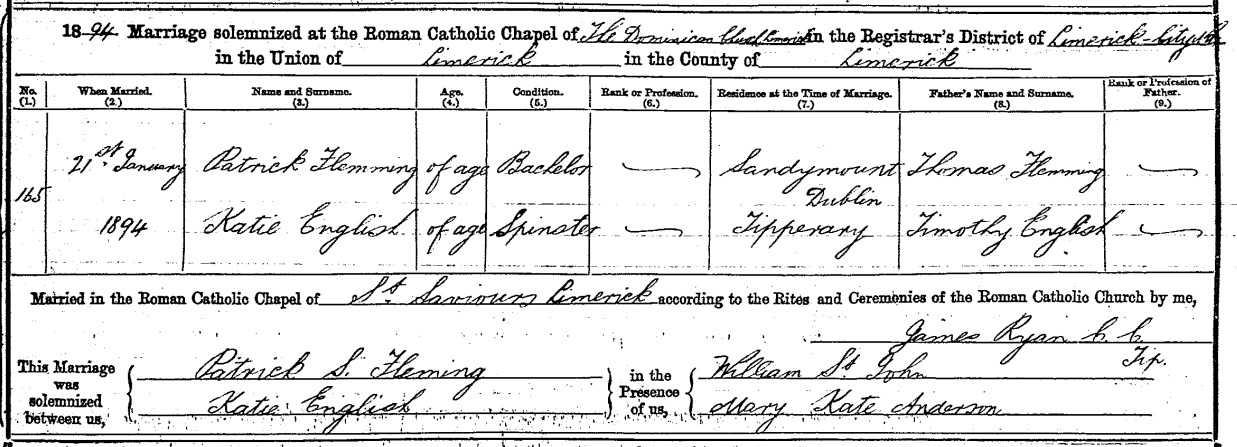 18-94. Marriage solemnized at the Roman Catholic Chapel of The Dominican Church Limerick in the Registrar's District of Limerick-City
in the Union of Limerick in the County of Limerick
No. When Married. Name and Surname. Age. Condition. Rank or Profession. Residence at the Time of Marriage. Father's Name and Surname. Rank or Profession of Father.
(1.) (2.) (3.) (4.) (5.) (6.) (7.) (8.) (9.)
165 21st January Patrick Flemming of age Bachelor — Sandymount Dublin Thomas Flemming —
1894 Katie English of age Spinster — Tipperary Timothy English —
Married in the Roman Catholic Chapel of St. Saviours Limerick according to the Rites and Ceremonies of the Roman Catholic Church by me,
James Ryan C. C.
Tip.
This Marriage was solemnized between us, Patrick S. Fleming
Katie English
in the Presence of us, William St. John
Mary Kate Anderson